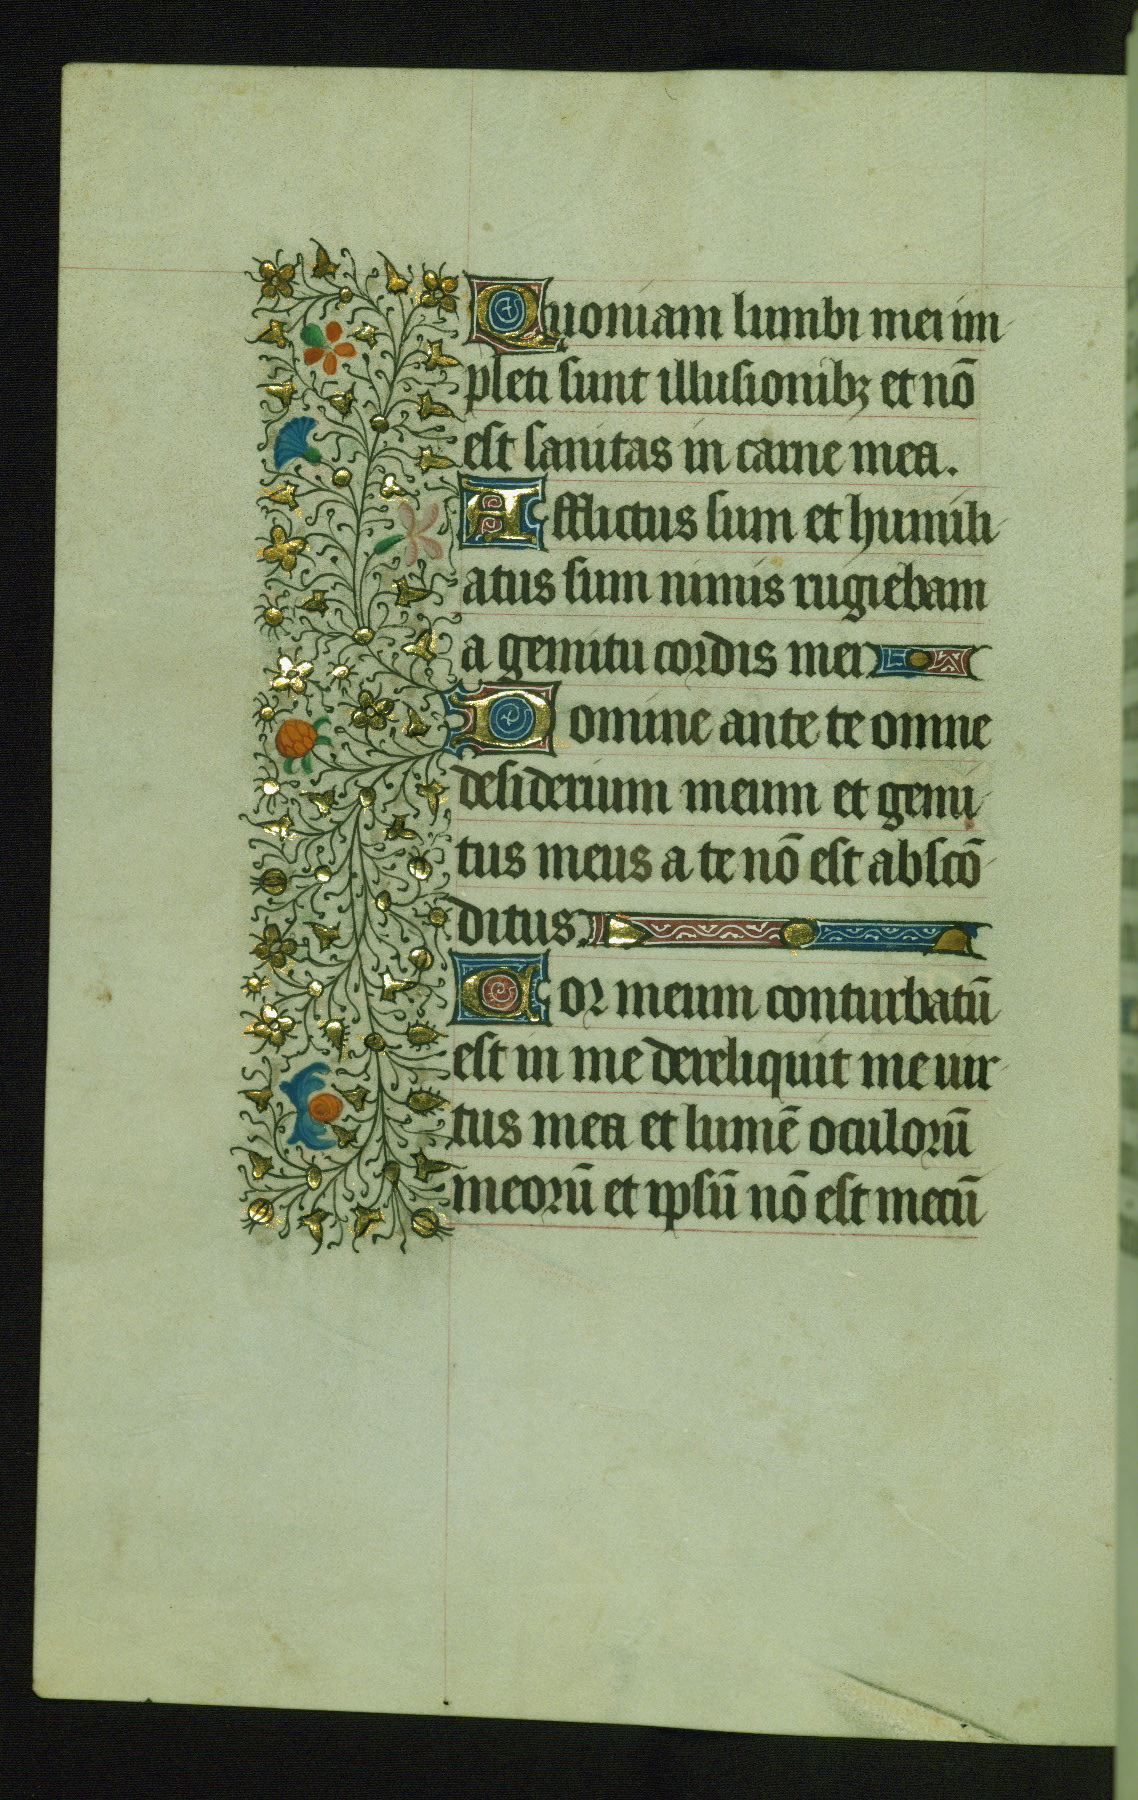 Quoniam lumbi mei im
pleti sunt illusionibꝫ et nō
est sanitas in carne mea.
Afflictus sum et humili
atus sum nimis rugiebam
a gemitu cordis mei
Domine ante te omne
desiderium meum et gemi
tus meus a te nō est abscō
ditus.
Cor meum conturbatū
est in me dereliquit me uir
tus mea et lumē oculorū
meorū et ipsū nō est mecū